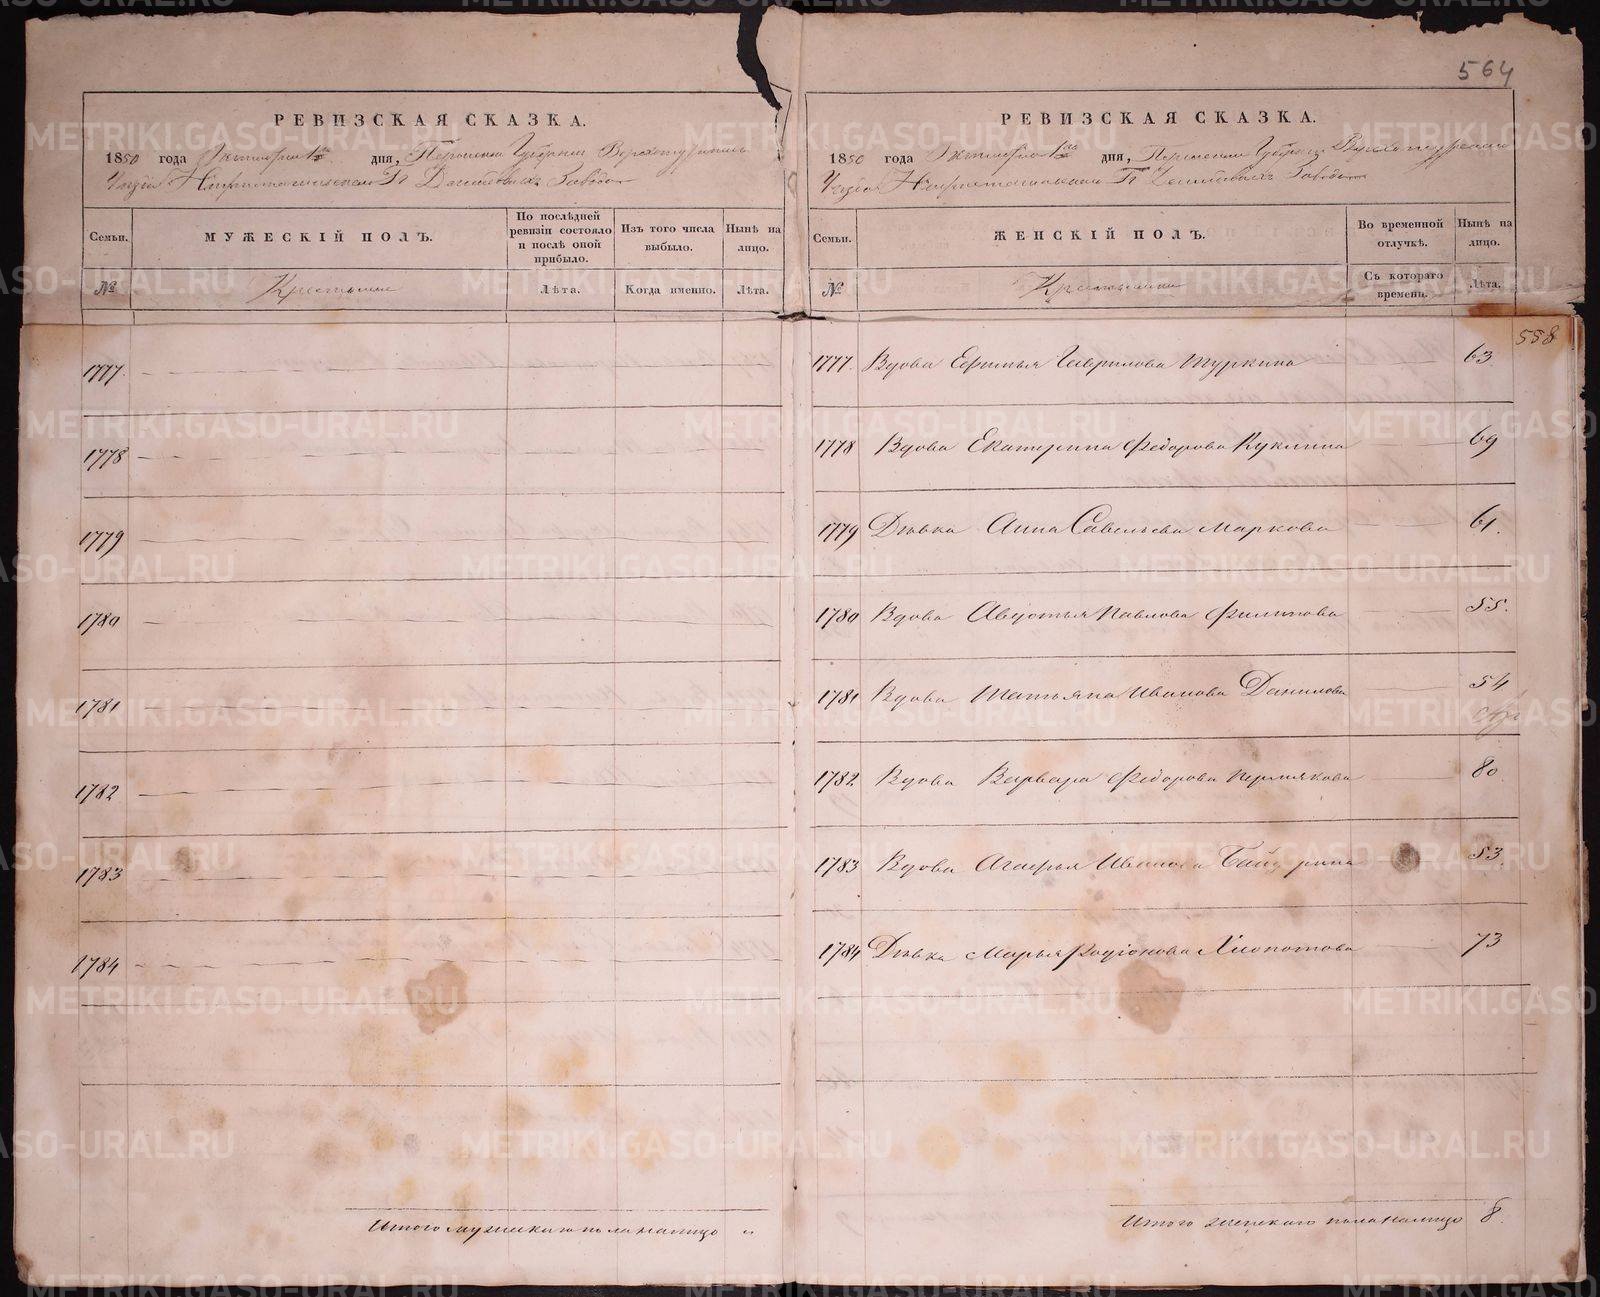 564
РЕВИЗСКАЯ СКАЗКА.
1850 года Октября 1го дня, Пермской Губернии Верхотурскаго
Уѣзда Нижнетагильскаго Гг Демидовыхъ Завода
Семьи. МУЖЕСКІЙ ПОЛЪ. По послѣдней ревизіи состояло и послѣ оной прибыло. Изъ того числа выбыло. Нынѣ на лицо.
№ Крестьяне Лѣта. Когда именно. Лѣта.
1777.
1778
1779
1780
1781
1782
1783
1784
Итого мужскаго пола налицо "
РЕВИЗСКАЯ СКАЗКА.
1850 года Октября 1го дня, Пермской Губерніи Верхотурскаго
Уѣзда Гг Демидовыхъ Завода
Семьи. ЖЕНСКІЙ ПОЛЪ. Во временной отлучкѣ. Нынѣ на лицо.
№ Крестьянки Съ котораго времени. Лѣта.
558
1777. Вдова Ефимья Гаврилова Туркина 63.
1778 Вдова Екатерина Федорова Куклина 69
1779 Дѣвка Анна Савельева Маркова 61.
1780 Вдова Авдотья Павлова Филипова 55.
1781 Вдова Татьяна Иванова Данилова 54
1782. Вдова Варвара Федорова Пермякова 80.
1783 Вдова Агафья Иванова 53.
1784 Дѣвка Марья Родіонова Хлопотова 73
Итого женскаго пола налицо 8.
METRIKI.GASO-URAL.RU